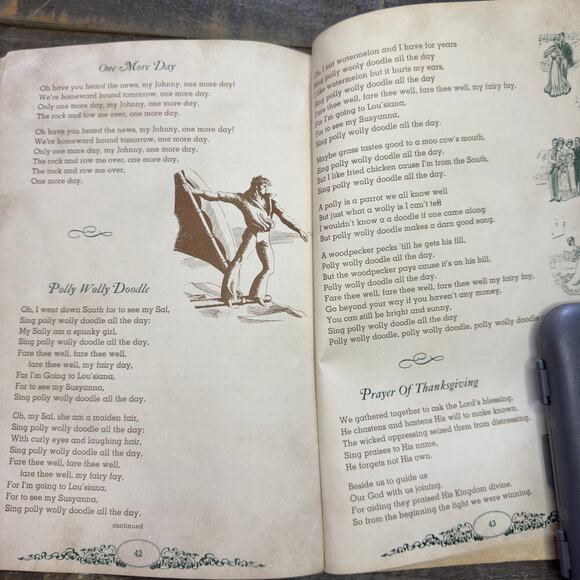 One More Day
Oh have you heard the news, my Johnny, one more day!
We're homeward bound tomorrow, one more day.
Only one more day, my Johnny, one more day,
The rock and tow me over, one more day.
Oh have you heard the news, my Johnny, one more day!
We're homeward bound tomorrow, one more day,
Only one more day, my Johnny, one more day,
The rock and row me over, one more day,
The rock and row me over,
One more day.
Polly Wolly Doodle
Oh, I went down South for to see my Sal,
Sing polly wolly doodle all the day:
My Sally am a spunky girl,
Sing polly wolly doodle all the day.
Fare thee well, fare thee well,
fare thee well, my fairy day,
For I'm Going to Lou'siana,
For to see my Susyanna,
Sing polly wolly doodle all the day.
Oh, my Sal, she am a maiden fair,
Sing polly wolly doodle all the day;
With curly eyes and laughing hair,
Sing polly wolly doodle all the day.
Fare thee well, fare thee well,
fare thee well, my fairy fay,
For I'm going to Lou'siana,
For to see my Susyanna,
Sing polly wolly doodle all the day.
continued
42
Oh, I eat watermelon and I have for years
Sing polly wooly doodle all the day
I like watermelon but it hurts my ears,
Sing polly wolly doodle all the day
Fare thee well, fare thee well, fare thee well, my fairy fay,
For I'm Going to Lou'siana,
For to see my Susyanna,
Sing polly wolly doodle all the day.
Maybe grass tastes good to a moo cow's mouth,
Sing polly wolly doodle all the day.
But I like fried chicken cause I'm from the South,
Sing polly wolly doodle all the day.
A polly is a parrot we all know well
But just what a wolly is I can't tell
I wouldn't know a a doodle if one came along
But polly wolly doodle makes a darn good song.
A woodpecker pecks 'till he gets his fill,
Polly wolly doodle all the day,
But the woodpecker pays cause it's on his bill,
Polly wolly doodle all the day.
Fare thee well, fare thee well, fare thee well my fairy fay,
Go beyond your way if you haven't any money,
You can still be bright and sunny,
Sing polly wolly doodle all the day
Polly wolly doodle, polly wolly doodle, polly wolly doodle
Prayer Of Thanksgiving
We gathered together to ask the Lord's blessing,
He chastens and hastens His will to make known,
The wicked oppressing seized them from distressing,
Sing praises to His name,
He forgets not His own.
Beside us to guide us
Our God with us joining.
For aiding they praised His Kingdom divine.
So from the beginning the fight we were winning,
43